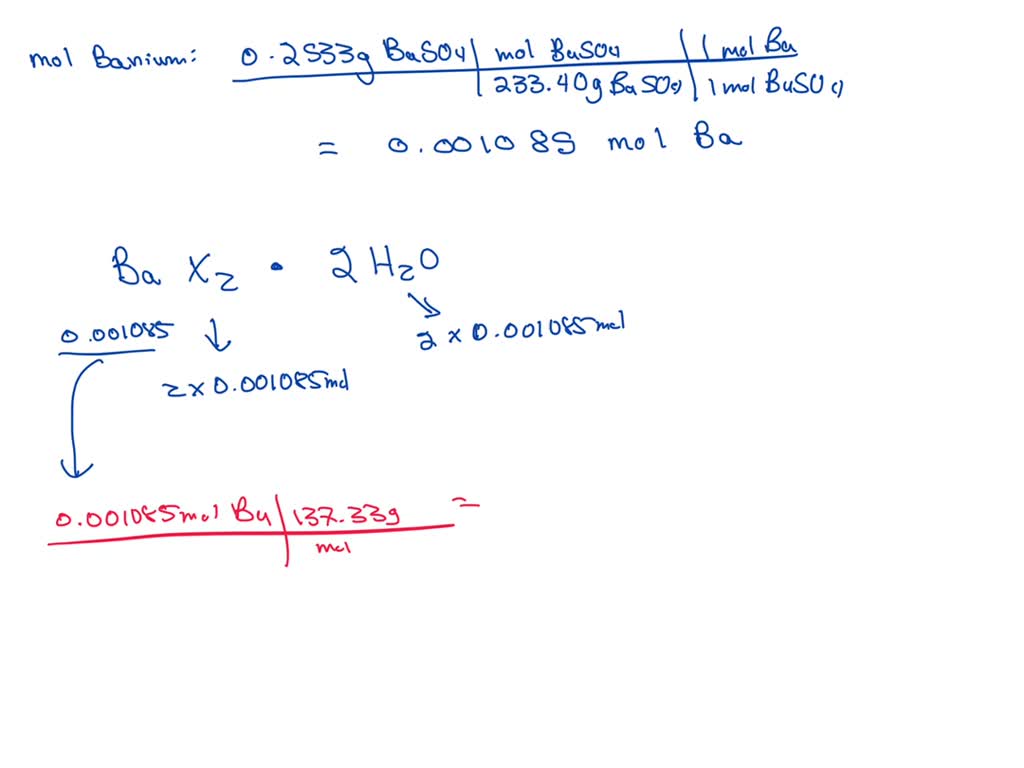 mol Barium: 0.2533g BaSO4 | mol BaSO4 | 1 mol Ba
233.40g BaSO4 | 1 mol BaSO4
= 0.001085 mol Ba
Ba X2 • 2 H2O
0.001085
2 × 0.001085 mol
2 × 0.001085 mol
0.001085 mol Ba | 137.33g =
mol